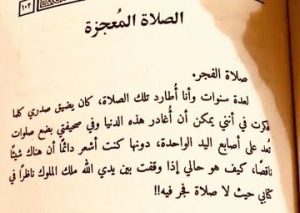 ١٠٣
الصلاة المُعجزة
صلاة الفجر.
لعدة سنوات وأنا أُطارد تلك الصلاة، كان يضيق صدري كلما
فكرت في أنني يمكن أن أُغادر هذه الدنيا وفي صحيفتي بضع صلوات
تُعد على أصابع اليد الواحدة، دونها كنت أشعر دائمًا أن هناك شيئًا
ناقصًا، كيف هو حالي إذا وقفت بين يدي الله ملك الملوك ناظرًا في
كتابي حيث لا صلاة فجر فيه!!